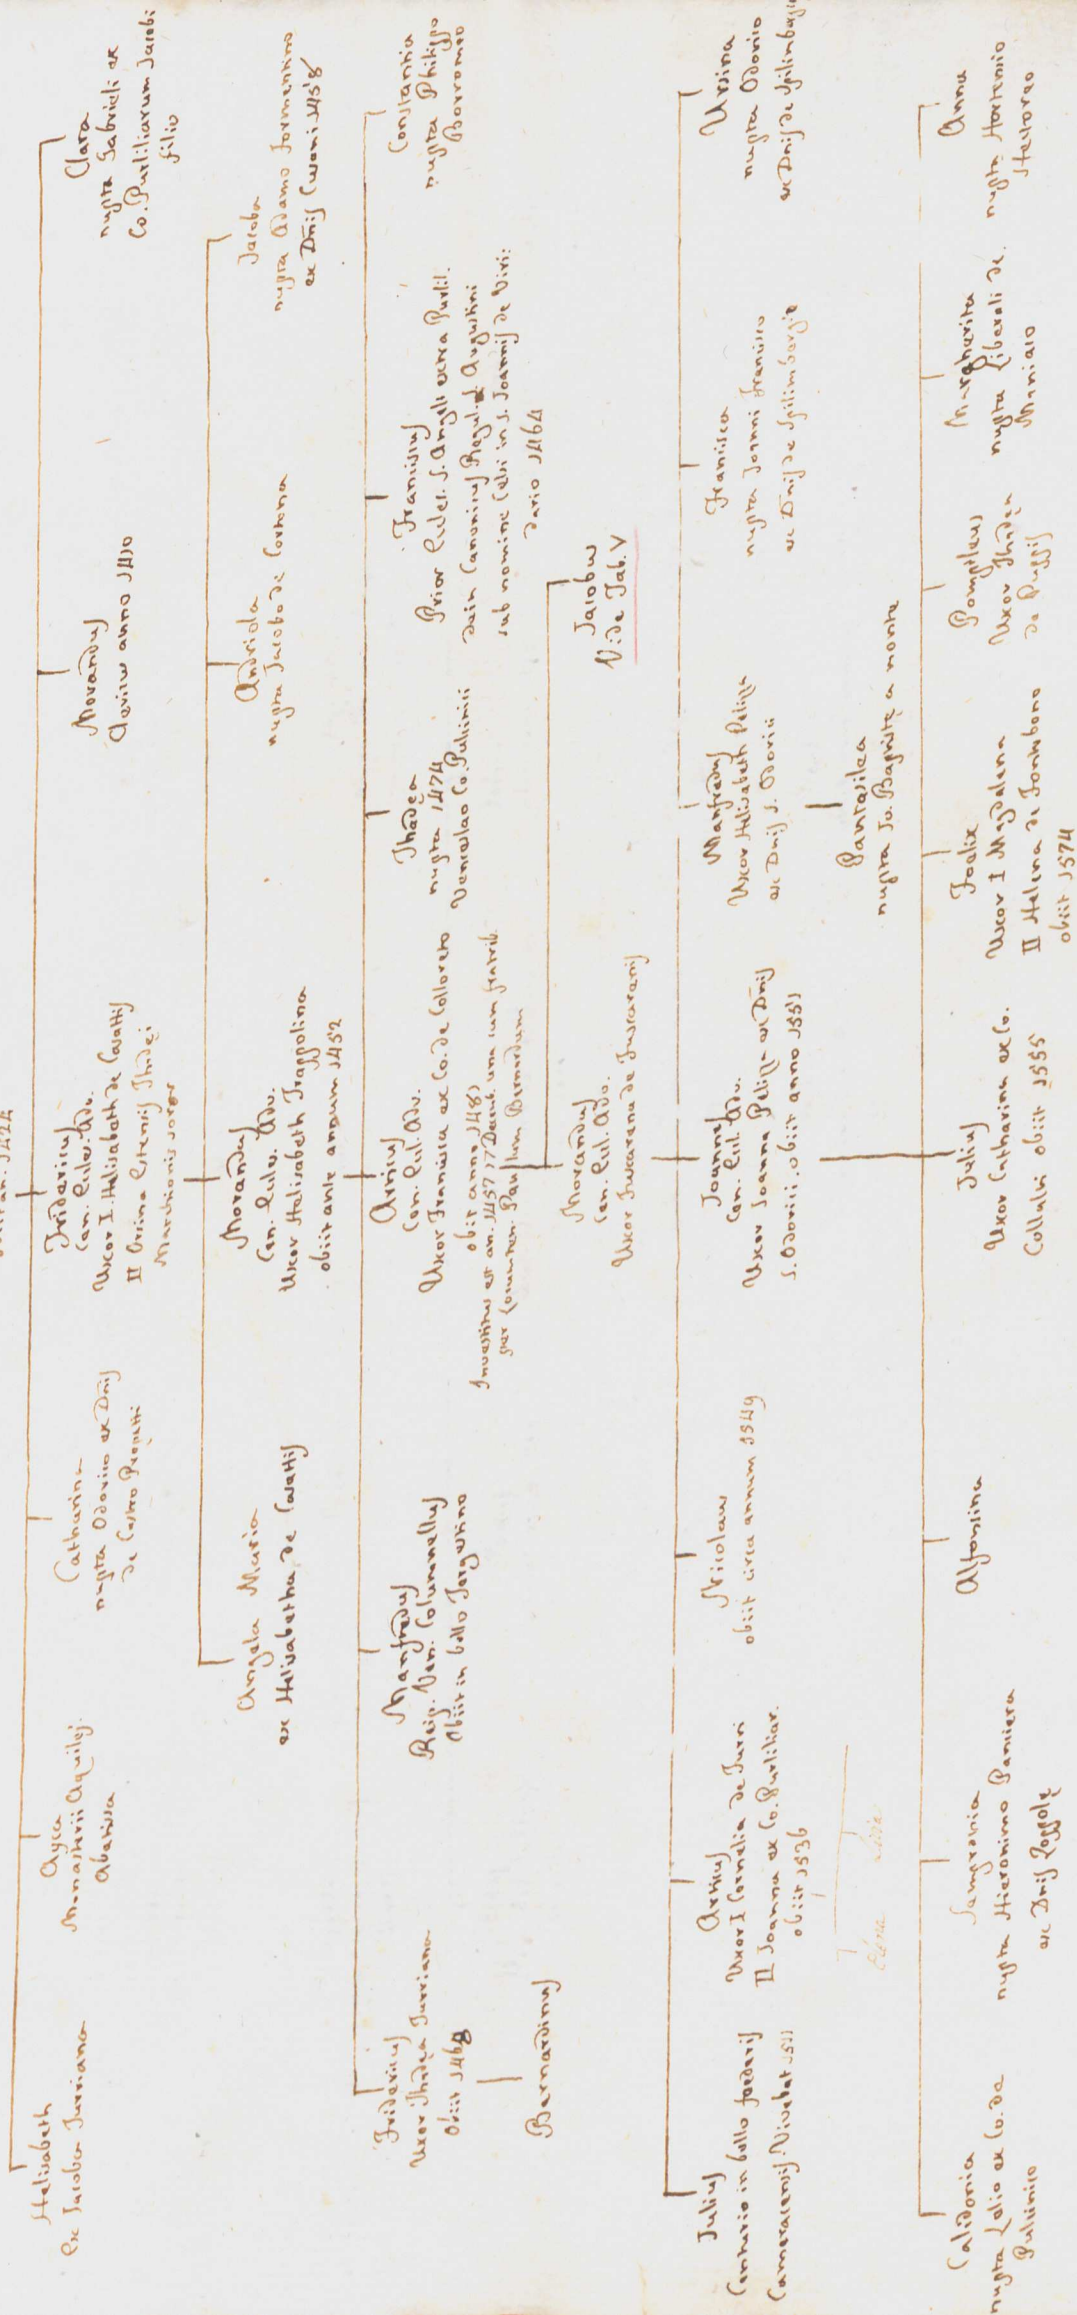 Helisabeth
ex Jacoba Turriana
Ayca
Monasterii Aquilej.
Abatissa
Catharina
nupta Odorico ex Dnis
de Castro Propetti
Fridericus
Con. Eccles. Adv.
Uxor I. Helisabeth de Cavattis
II Orsina Estensis Thadei
Marchionis soror
Morandus
Clericus anno 1410
Clara
nupta Gabrieli ex
Co. Purliliarum Jacobi
filio
Angela Maria
ex Helisabetha de Cavattis
Morandus
Con. Eccles. Adv.
Uxor Helisabeth Trappolina
obiit ante annum 1452
Andriola
nupta Jacobo de Cortona
Jacoba
nupta Adamo Formentino
ex Dnis Cusani 1458
Fridericus
Uxor Thadea Turriana
Obiit 1468
Bernardinus
Manfredus
Reip. Ven. Columnellus
Obiit in bello Tergestino
Articus
Con. Eccl. Adv.
Uxor Francisca ex Co. de Colloreto
obiit anno 1483
Investitus est an. 1457 17 Decemb. una cum fratrib.
per Commiten. Paulum Bernardum
Thadea
nupta 1474
Venceslao Co. Pulcinici
Franciscus
Prior Eccles. S. Angeli extra Purlil.
dein Canonicus Regul. S. Augustini
sub nomine Celsi in S. Joannis de Viri:
dario 1464
Constantia
nupta Philippo
Borromeo
Morandus
Con. Eccl. Adv.
Uxor Fuscarena de Fuscarenis
Jacobus
Vide Tab. V
Julius
Centurio in bello foederis
Cameracensis. Vivebat 1511
Articus
Uxor I Cornelia de Turri
II Joanna ex Co. Purliliar.
obiit 1536
Elena Livia
Nicolaus
obiit circa annum 1549
Joannes
Con. Eccl. Adv.
Uxor Joanna Pelizza ex Dnis
S. Odorici. obiit anno 1551
Manfredus
Uxor Helisabeth Pelizza
ex Dnis S. Odorici
Pantasilea
nupta Jo. Baptistę a monte
Francisca
nupta Joanni Francisco
ex Dnis de Spilimbergio
Ursina
nupta Odorico
ex Dnis de Spilimbergio
Calidonia
nupta Lelio ex Co. de
Pulcinico
Sempronia
nupta Hieronimo Panciera
ex Dnis Zoppolę
Alfonsina
Julius
Uxor Catharina ex Co.
Collalti obiit 1555
Foelix
Uxor I Magdalena
II Helena de Fontebono
obiit 1574
Pompileus
Uxor Thadea
de Puppis
Margherita
nupta Liberali de
Maniaco
Anna
nupta Hortensio